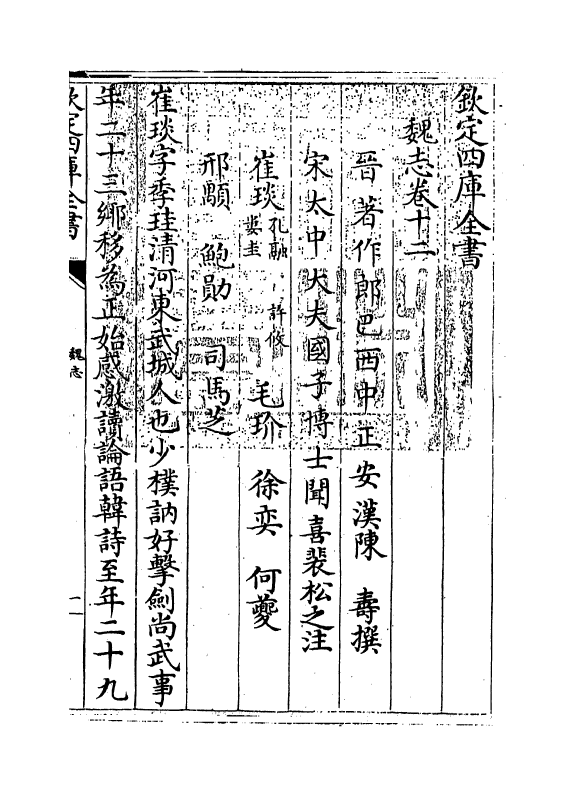 欽定四庫全書
魏志卷十二
晉著作郎巴西中正安漢陳壽撰
宋太中大夫國子博士聞喜裴松之注
崔琰孔融許攸婁圭毛玠徐奕何夔
邢顒鮑勛司馬芝
崔琰字季珪清河東武城人也少樸訥好擊劍尚武事
年二十三鄉移為正始感激讀論語韓詩至年二十九
欽定四庫全書
魏志
一